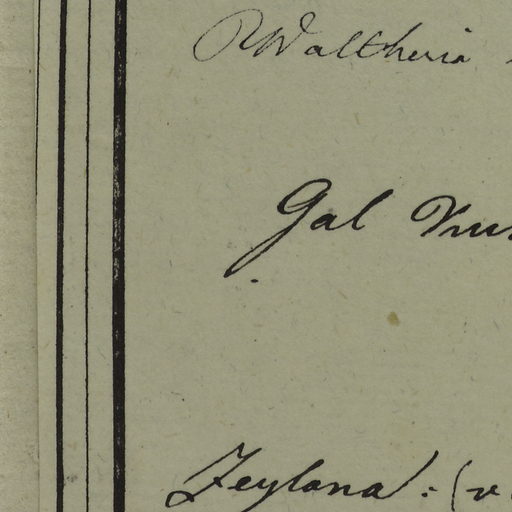 Waltheria
Gal
Zeylana: (v